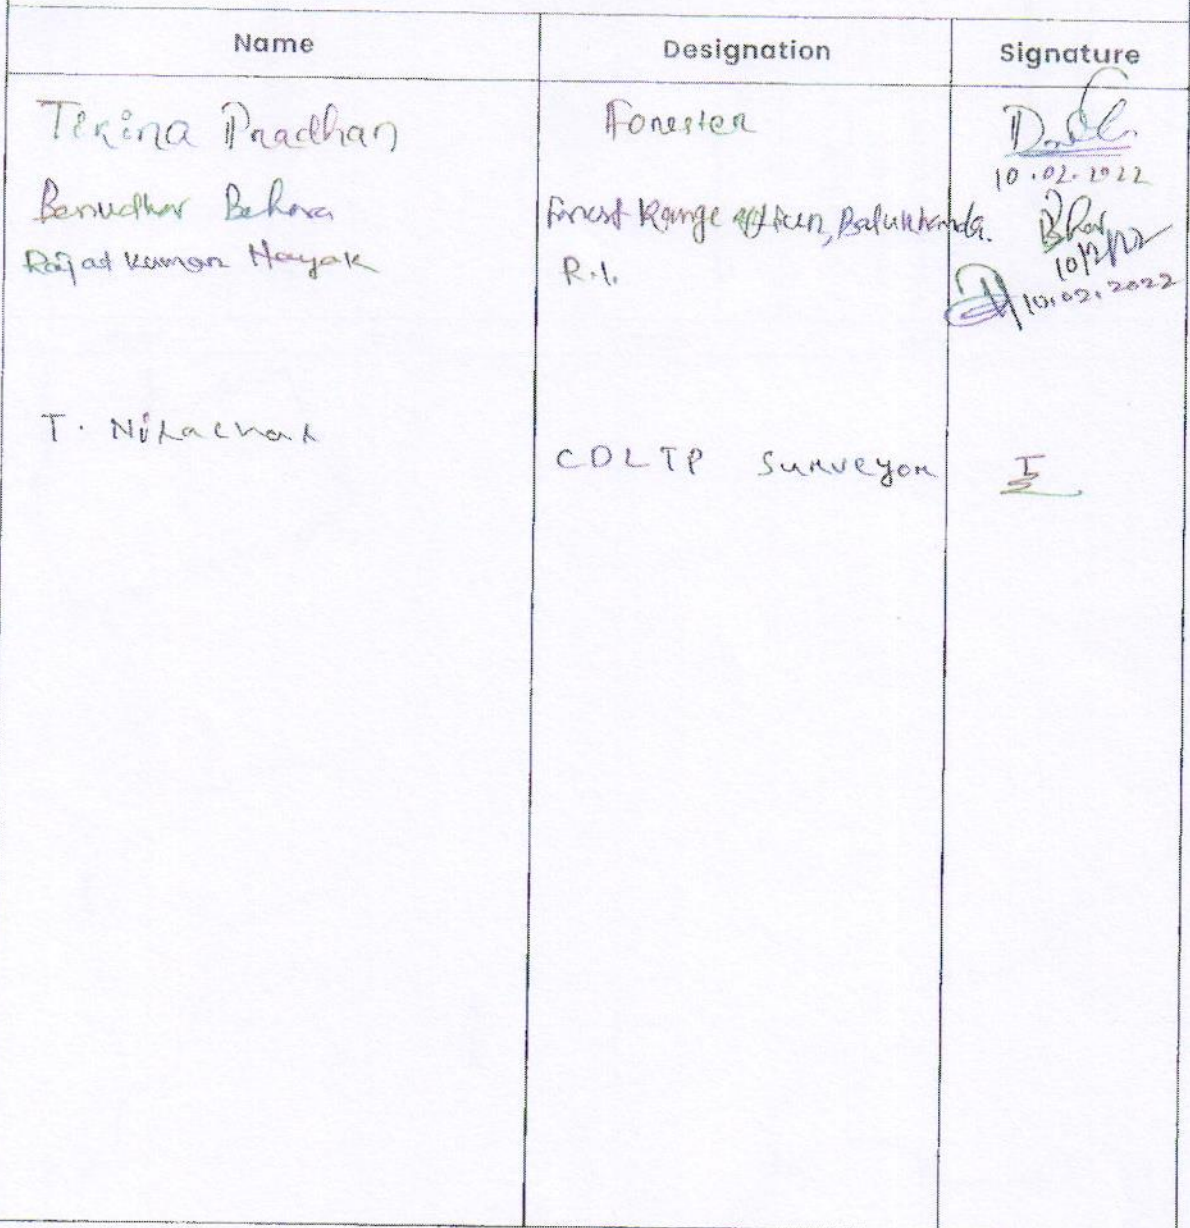 Name Designation Signature
Tikina Pradhan Forester
10.02.2022
Benudhar Behera Forest Range Officer, Balukhanda.
10/2/22
Rajat Kumar Nayak R.I. 10.02.2022
T. Nilachal
CDLTP Surveyor